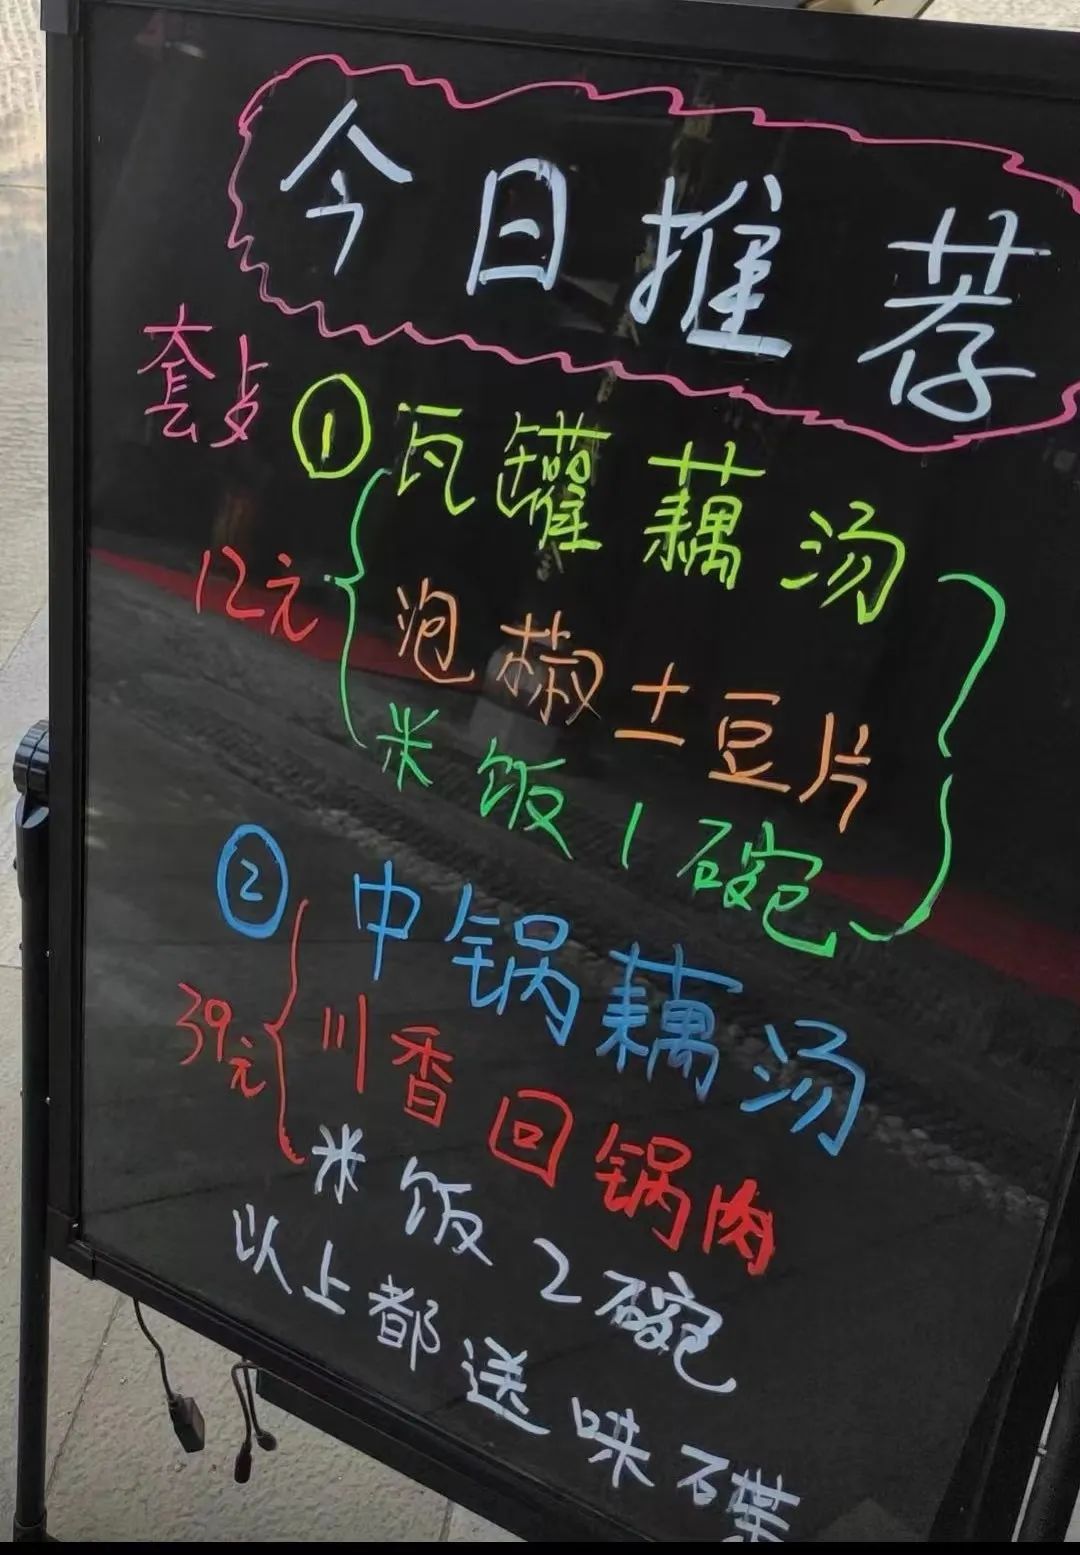 今日推荐
套歺 ① 瓦罐藕汤
12元 泡椒土豆片
米饭1碗
② 中锅藕汤
39元 川香回锅肉
米饭2碗
以上都送味碟